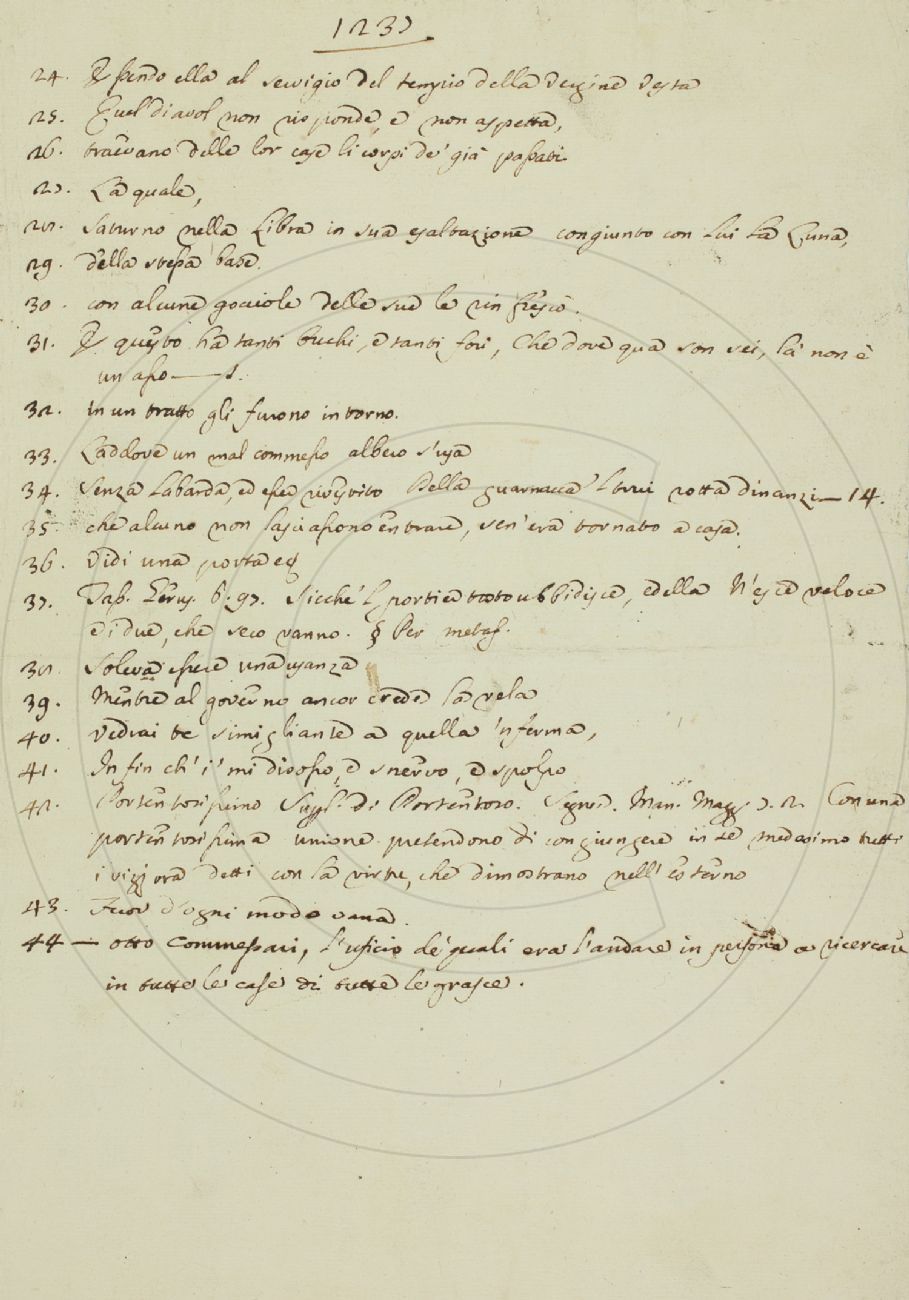 1237
24. Essendo ella al servigio del tempio della Vergine Vesta
25. Quel diavol non risponde, e non aspetta,
26. traevano delle lor case li corpi de' già passati
27. La quale,
28. Saturno nella Libra in sua esaltazione congiunto con lui la Luna,
29. della stessa base.
30. con alcune gocciole delle sue le rinfrescò.
31. E questo ha tanti buchi, e tanti fori, Che dove qua son sei, là non è
un aso
32. In un tratto gli furono intorno.
33. Laddove un mal commesso albero s'usa
34. Senza labarda, ed esser vestito della guarnacca rotta dinanzi — 14.
35 che alcuno non lasciassono entrare, sen'era tornato a casa.
36. Vidi una porta
37. Tass. Gerus. 6. 97. Sicchè 'l portier tosto ubbidisce, ed ella N'esce veloce
e i due, che seco vanno. § Per metaf.
38. Soleva essere una usanza
39. Mentre al governo ancor crede la vela
40. Vedrai te simigliante a quella 'nferma,
41. In fin ch' i' mi disosso, e snervo, e spolpo
42. Portentosissimo Suppl. di Portentoso. Segner. Man. Magg. 7. 2. Con una
portentosissima unione pretendono di congiungere in se medesimo tutti
i vizj ora detti con la virtu, che dimostrano nell' esterno
43. Fuor d'ogni modo vana
44 — otto Commessari, l'uficio de' quali era l'andare in persona a ricercare
in tutte le case di tutte le grasce.